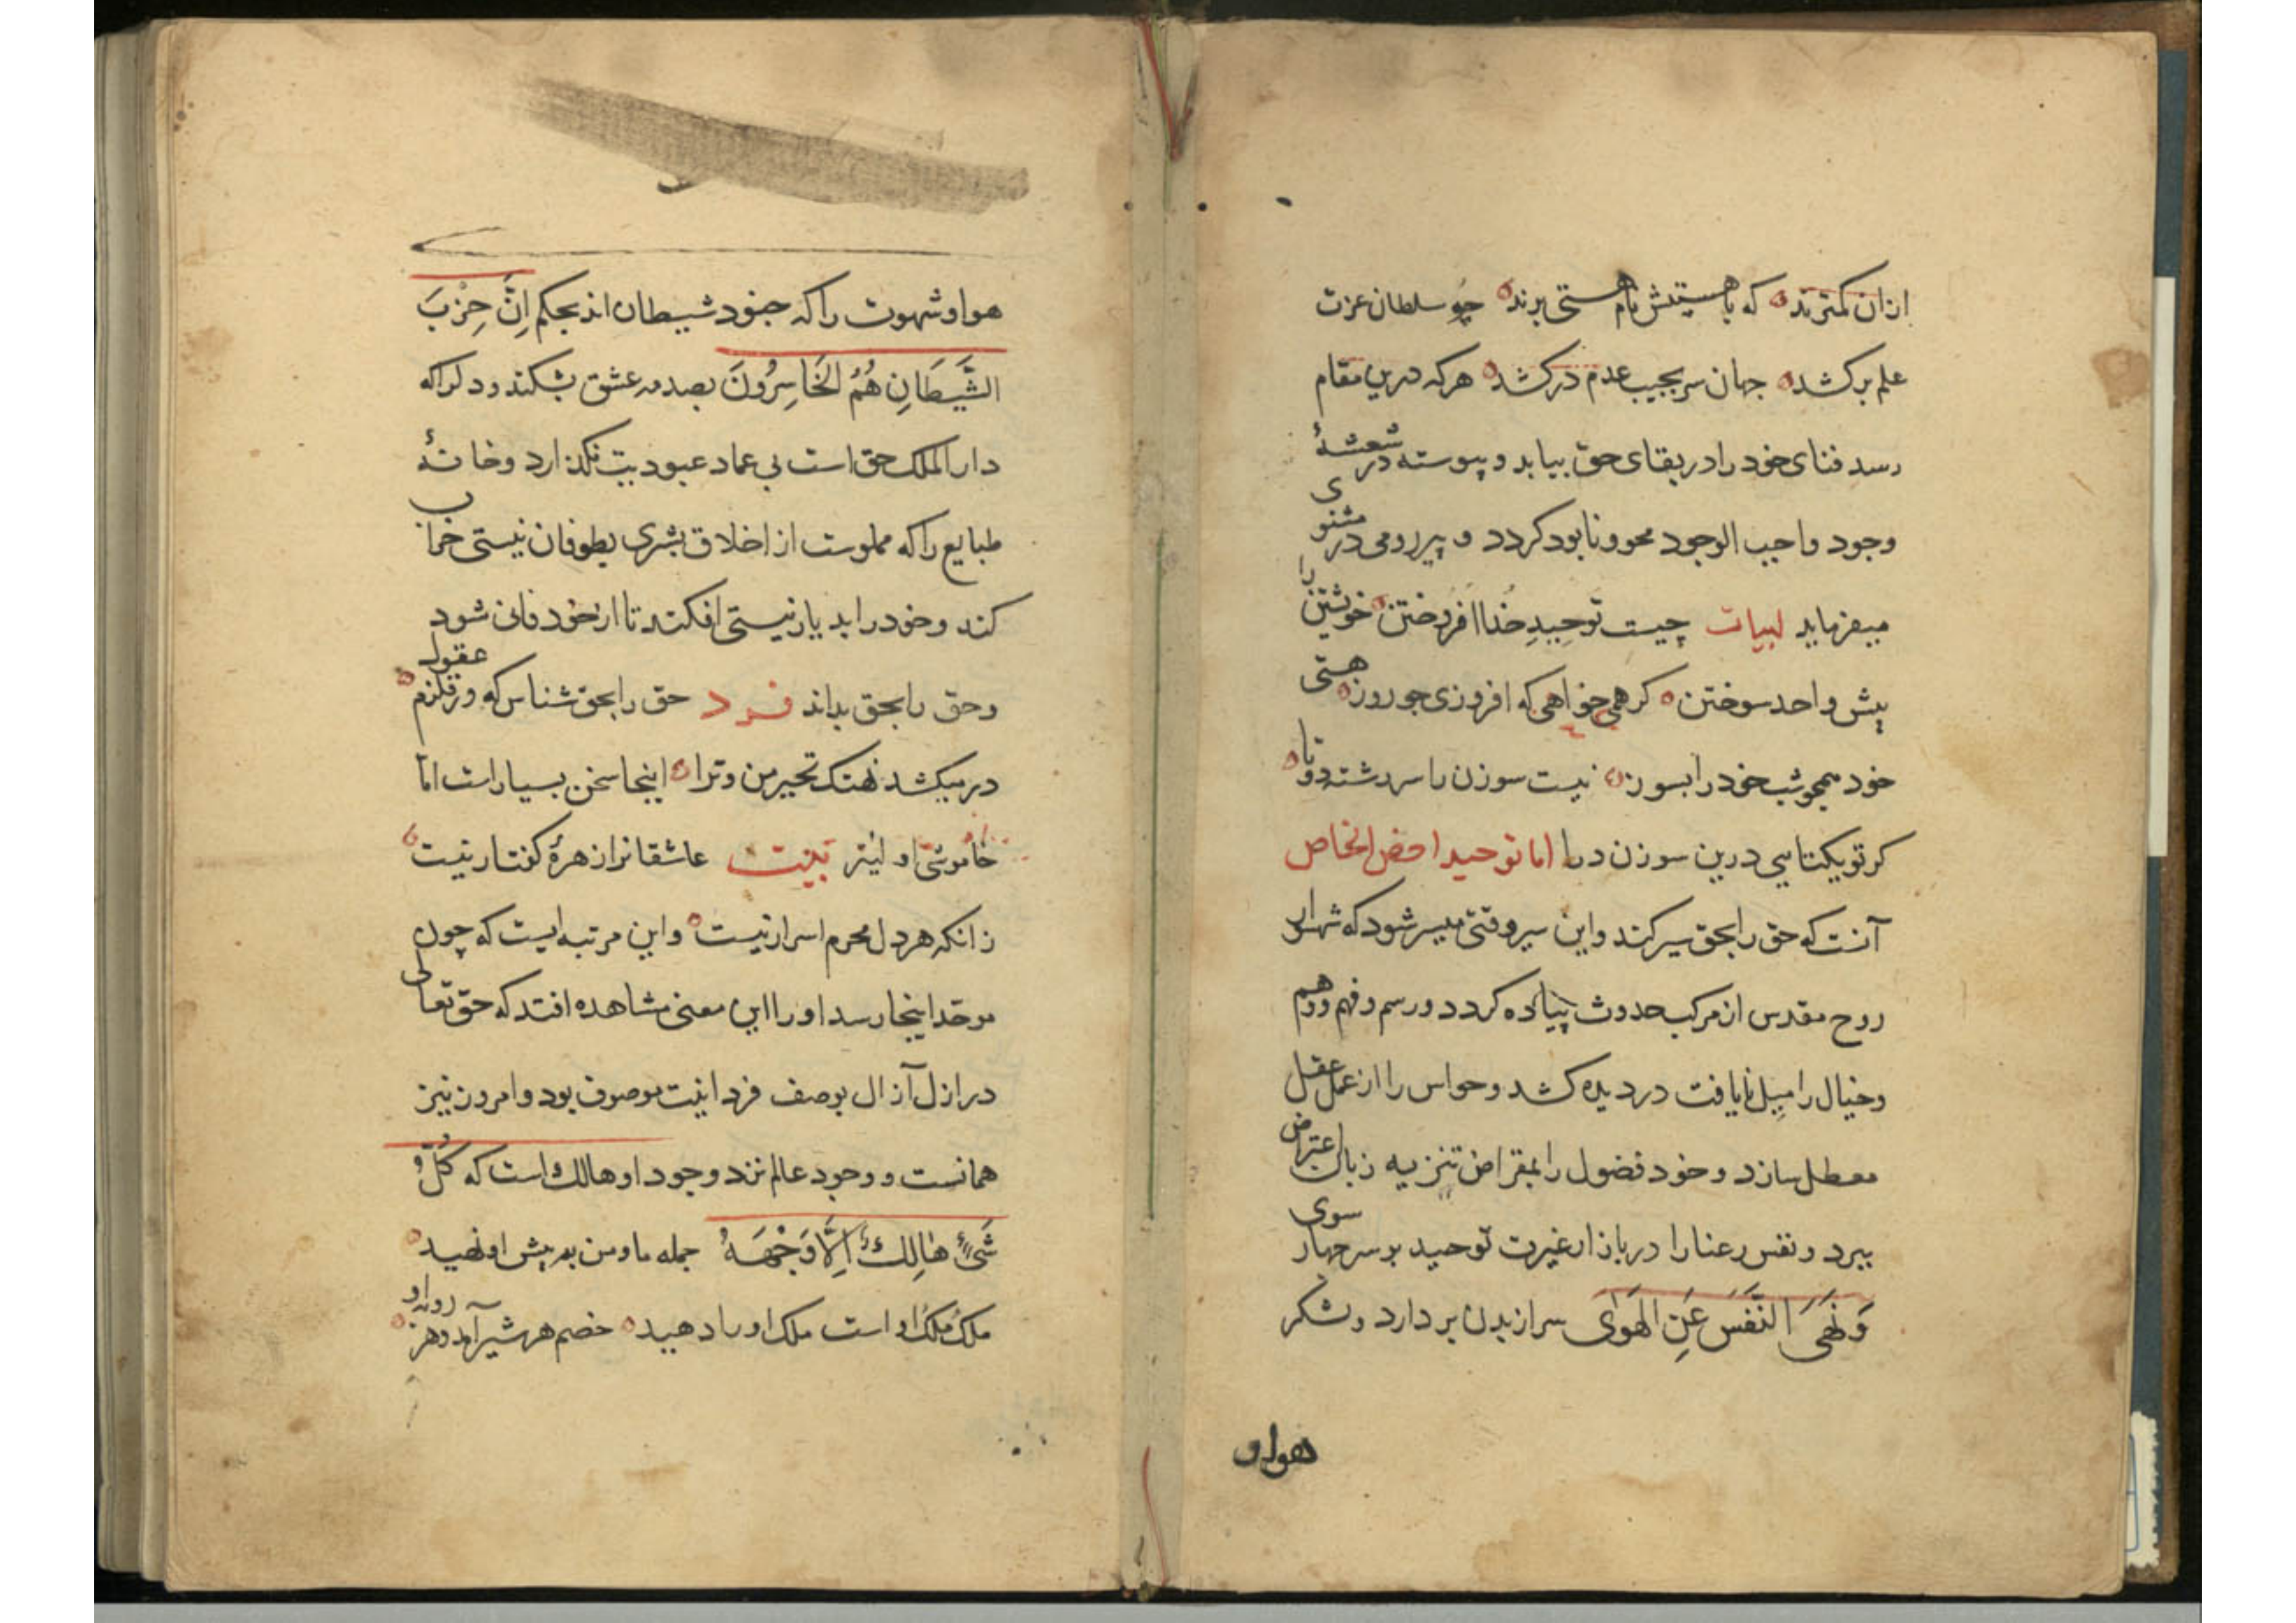 ازان کمترند که با هستیش نام هستی برند چو سلطان عزت
علم برکشد جهان سر بجیب عدم درکشد هرکه درین مقام
رسد فنای خود را در بقای حق بیابد و پیوسته در شعشهٔ
وجود واجب الوجود محو و نابود کردد و پیر رومی در مثنوی
میفرماید ابیات چیست توحیدِ خُدا افروختن خویشتن را
پیش واحد سوختن کر همی خواهی که افروزی چو روز هستی
خود همچو شب خود را بسوز نیست سوزن را سر رشته دو تا
کر تو یکتایی درین سوزن درا اما توحید اخص الخاص
آنست که حق را بحق سیر کند و این سیر وقتی میسر شود که شهسوار
روح مقدس از مرکب حدوث پیاده کردد و رسم و فهم و وهم
و خیال را میل نایافت در دیده کشد و حواس را از عمل عقل
معطل سازد و خود فضول را بمقراض تنزیه زبان اعتراض
ببرد و نفس رعنا را در بازار غیرت توحید بر سر چهار سوی
وَنَهَی النَّفسَ عَنِ الهَوَای سر از بدن بردارد و لشکر
هوا و
هوا و شهوت را که جنود شیطان اند بحکم اِنَّ حِزْبَ
الشَّیطَانِ هُمُ الخَاسِرُونَ بصدمه عشق بشکند و دل را که
دار الملک حق است بی عماد عبودیت نکذارد و خانهٔ
طبایع را که مملوست از اخلاق بشری بطوفان نیستی خراب
کند و خود را بدیار نیستی افکند تا از خود فانی شود
و حق را بحق بداند فرد حق را بحق شناس که در قلزم عقول
درمیکشد نهنک تحیر من و ترا اینجا سخن بسیار است اما
خاموشی اولیتر بیت عاشقانرا زهرهٔ کفتار نیست
زانکه هر دل محرم اسرار نیست و این مرتبه ایست که چون
موحد اینجا رسد او را این معنی مشاهده افتد که حق تعالی
در ازل آزال بوصف فردانیت موصوف بود و امروز نیز
همانست و وجود عالم نزد وجود او هالك است که کُلُّ
شَیءٍ هَالِكٌ اِلَّا وَجْهَهُ جمله ما و من به پیش او نهید
ملك مُلك او است ملك او را دهید خصم هر شیر آمد و هر روبه او